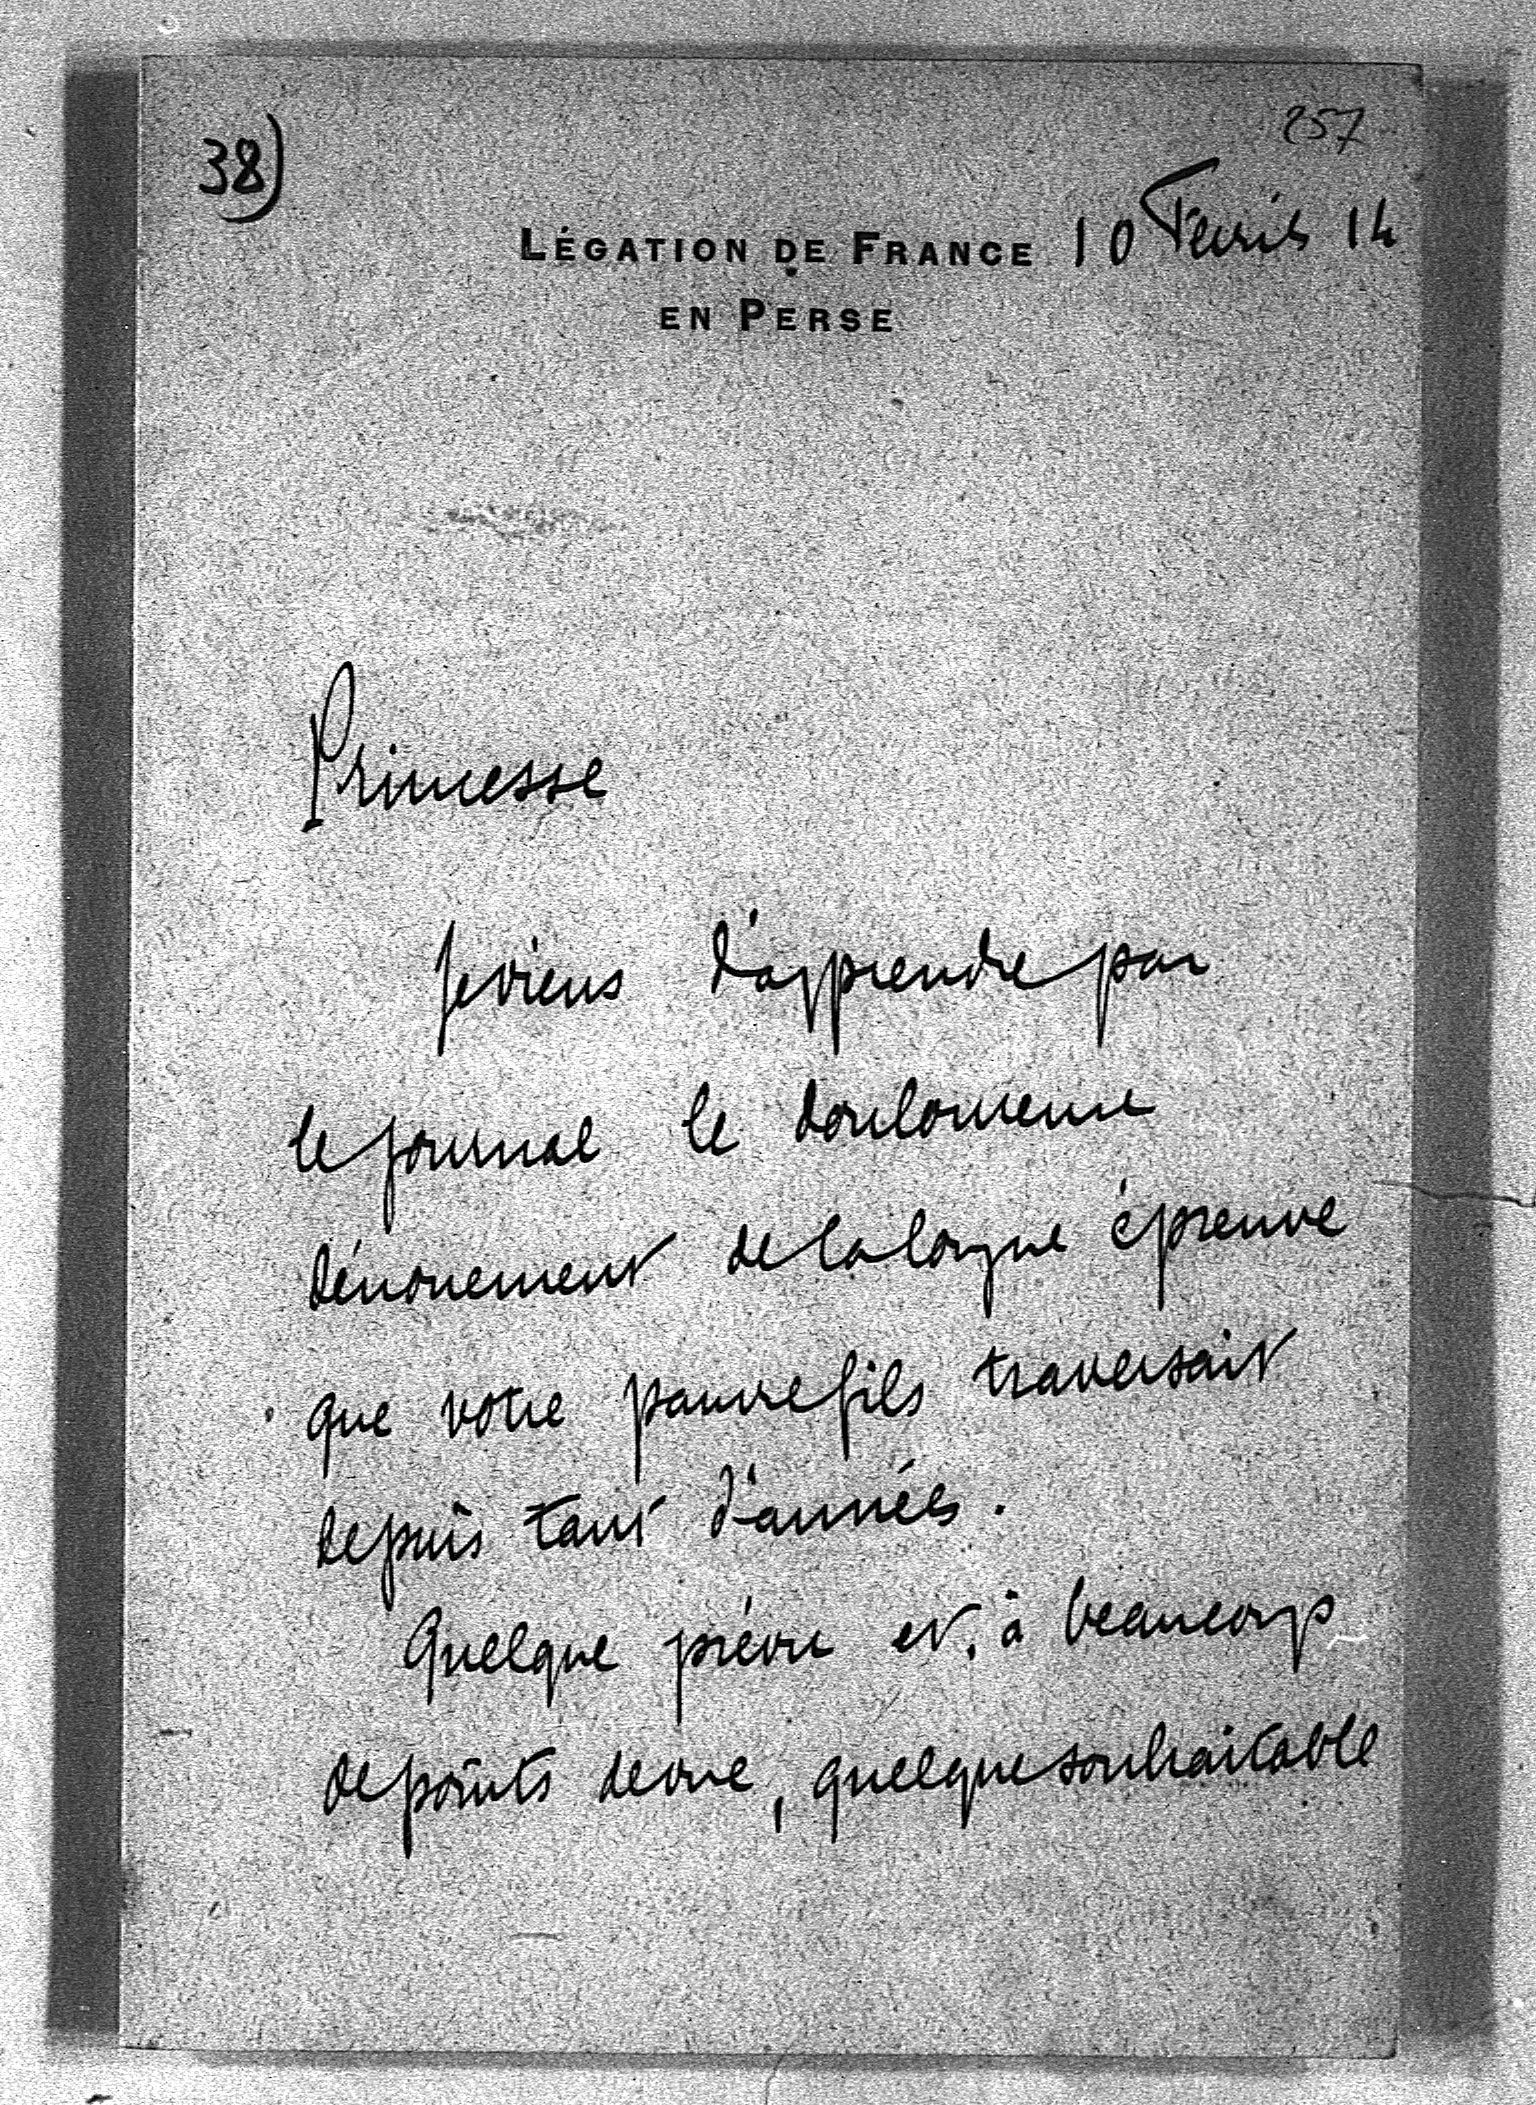 38)
257
LÉGATION DE FRANCE 10 Février 14
EN PERSE
Princesse
Je viens d'apprendre par
le journal le douloureux
dénouement de la longue épreuve
que votre pauvre fils traversait
depuis tant d'années.
Quelque prévu et, à beaucoup
de points de vue, quelque souhaitable